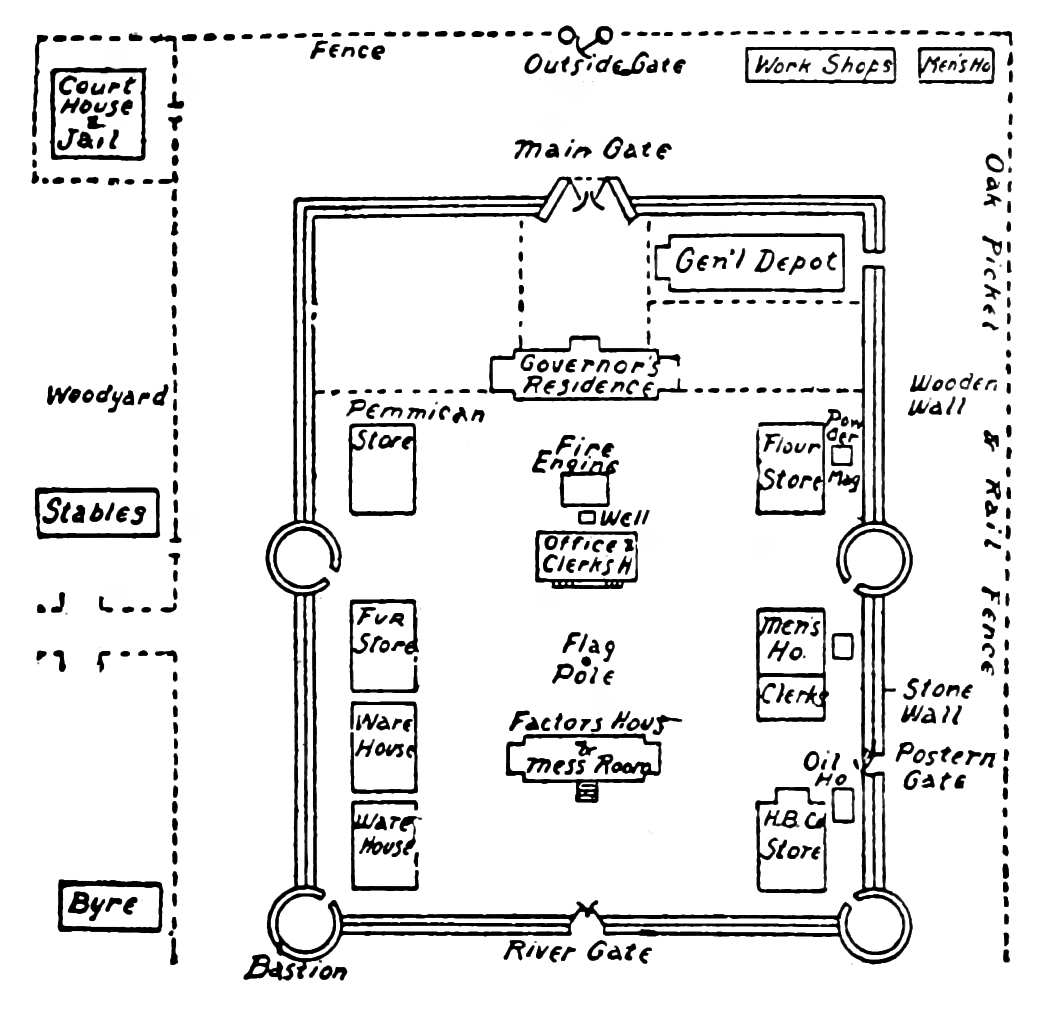 Fence
Outside Gate
Work Shops
Men's Ho
Court
House
&
Jail
Main Gate
Oak Picket & Rail Fence
Gen'l Depot
Governor's
Residence
Woodyard
Wooden
Wall
Pemmican
Store
Fire
Engine
Flour
Store
Pow
der
Mag
Stables
Well
Office &
Clerks H
Fur
Store
Flag
Pole
Men's
Ho.
Clerks
Stone
Wall
Ware
House
Factors Hous
&
Mess Room
Oil
Ho
Postern
Gate
Ware
House
H.B. Co
Store
Byre
River Gate
Bastion